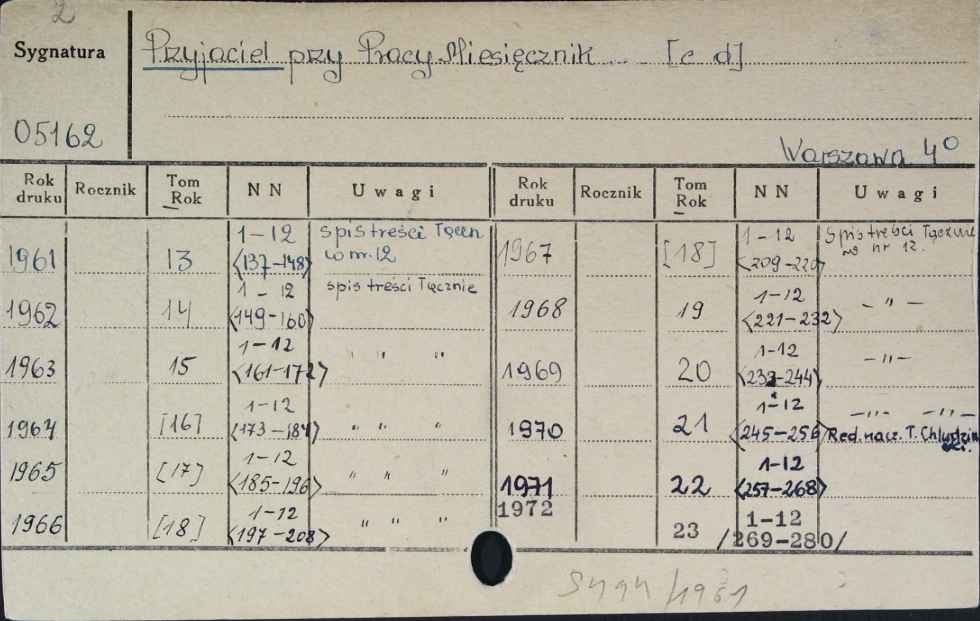 2
Sygnatura
Przyjaciel przy Pracy. Miesięcznik... [c d]
05162
Warszawa 4°
Rok druku Rocznik Tom Rok N N Uwagi Rok druku Rocznik Tom Rok N N Uwagi
1961 13 1-12 <137-148> spis treści Łączn w nr. 12
1962 14 1-12 <149-160> spis treści Łącznie
1963 15 1-12 <161-172> " " "
1964 [16] 1-12 <173-184> " " "
1965 [17] 1-12 <185-196> " " "
1966 [18] 1-12 <197-208> " " "
1967 [18] 1-12 <209-220> Spis treści Łącznie w nr 12.
1968 19 1-12 <221-232> - " -
1969 20 1-12 <233-244> - " -
1970 21 1-12 <245-256> - " - - " - Red. nacz. T.
1971 22 1-12 <257-268>
1972 23 1-12 /269-280/
/1961